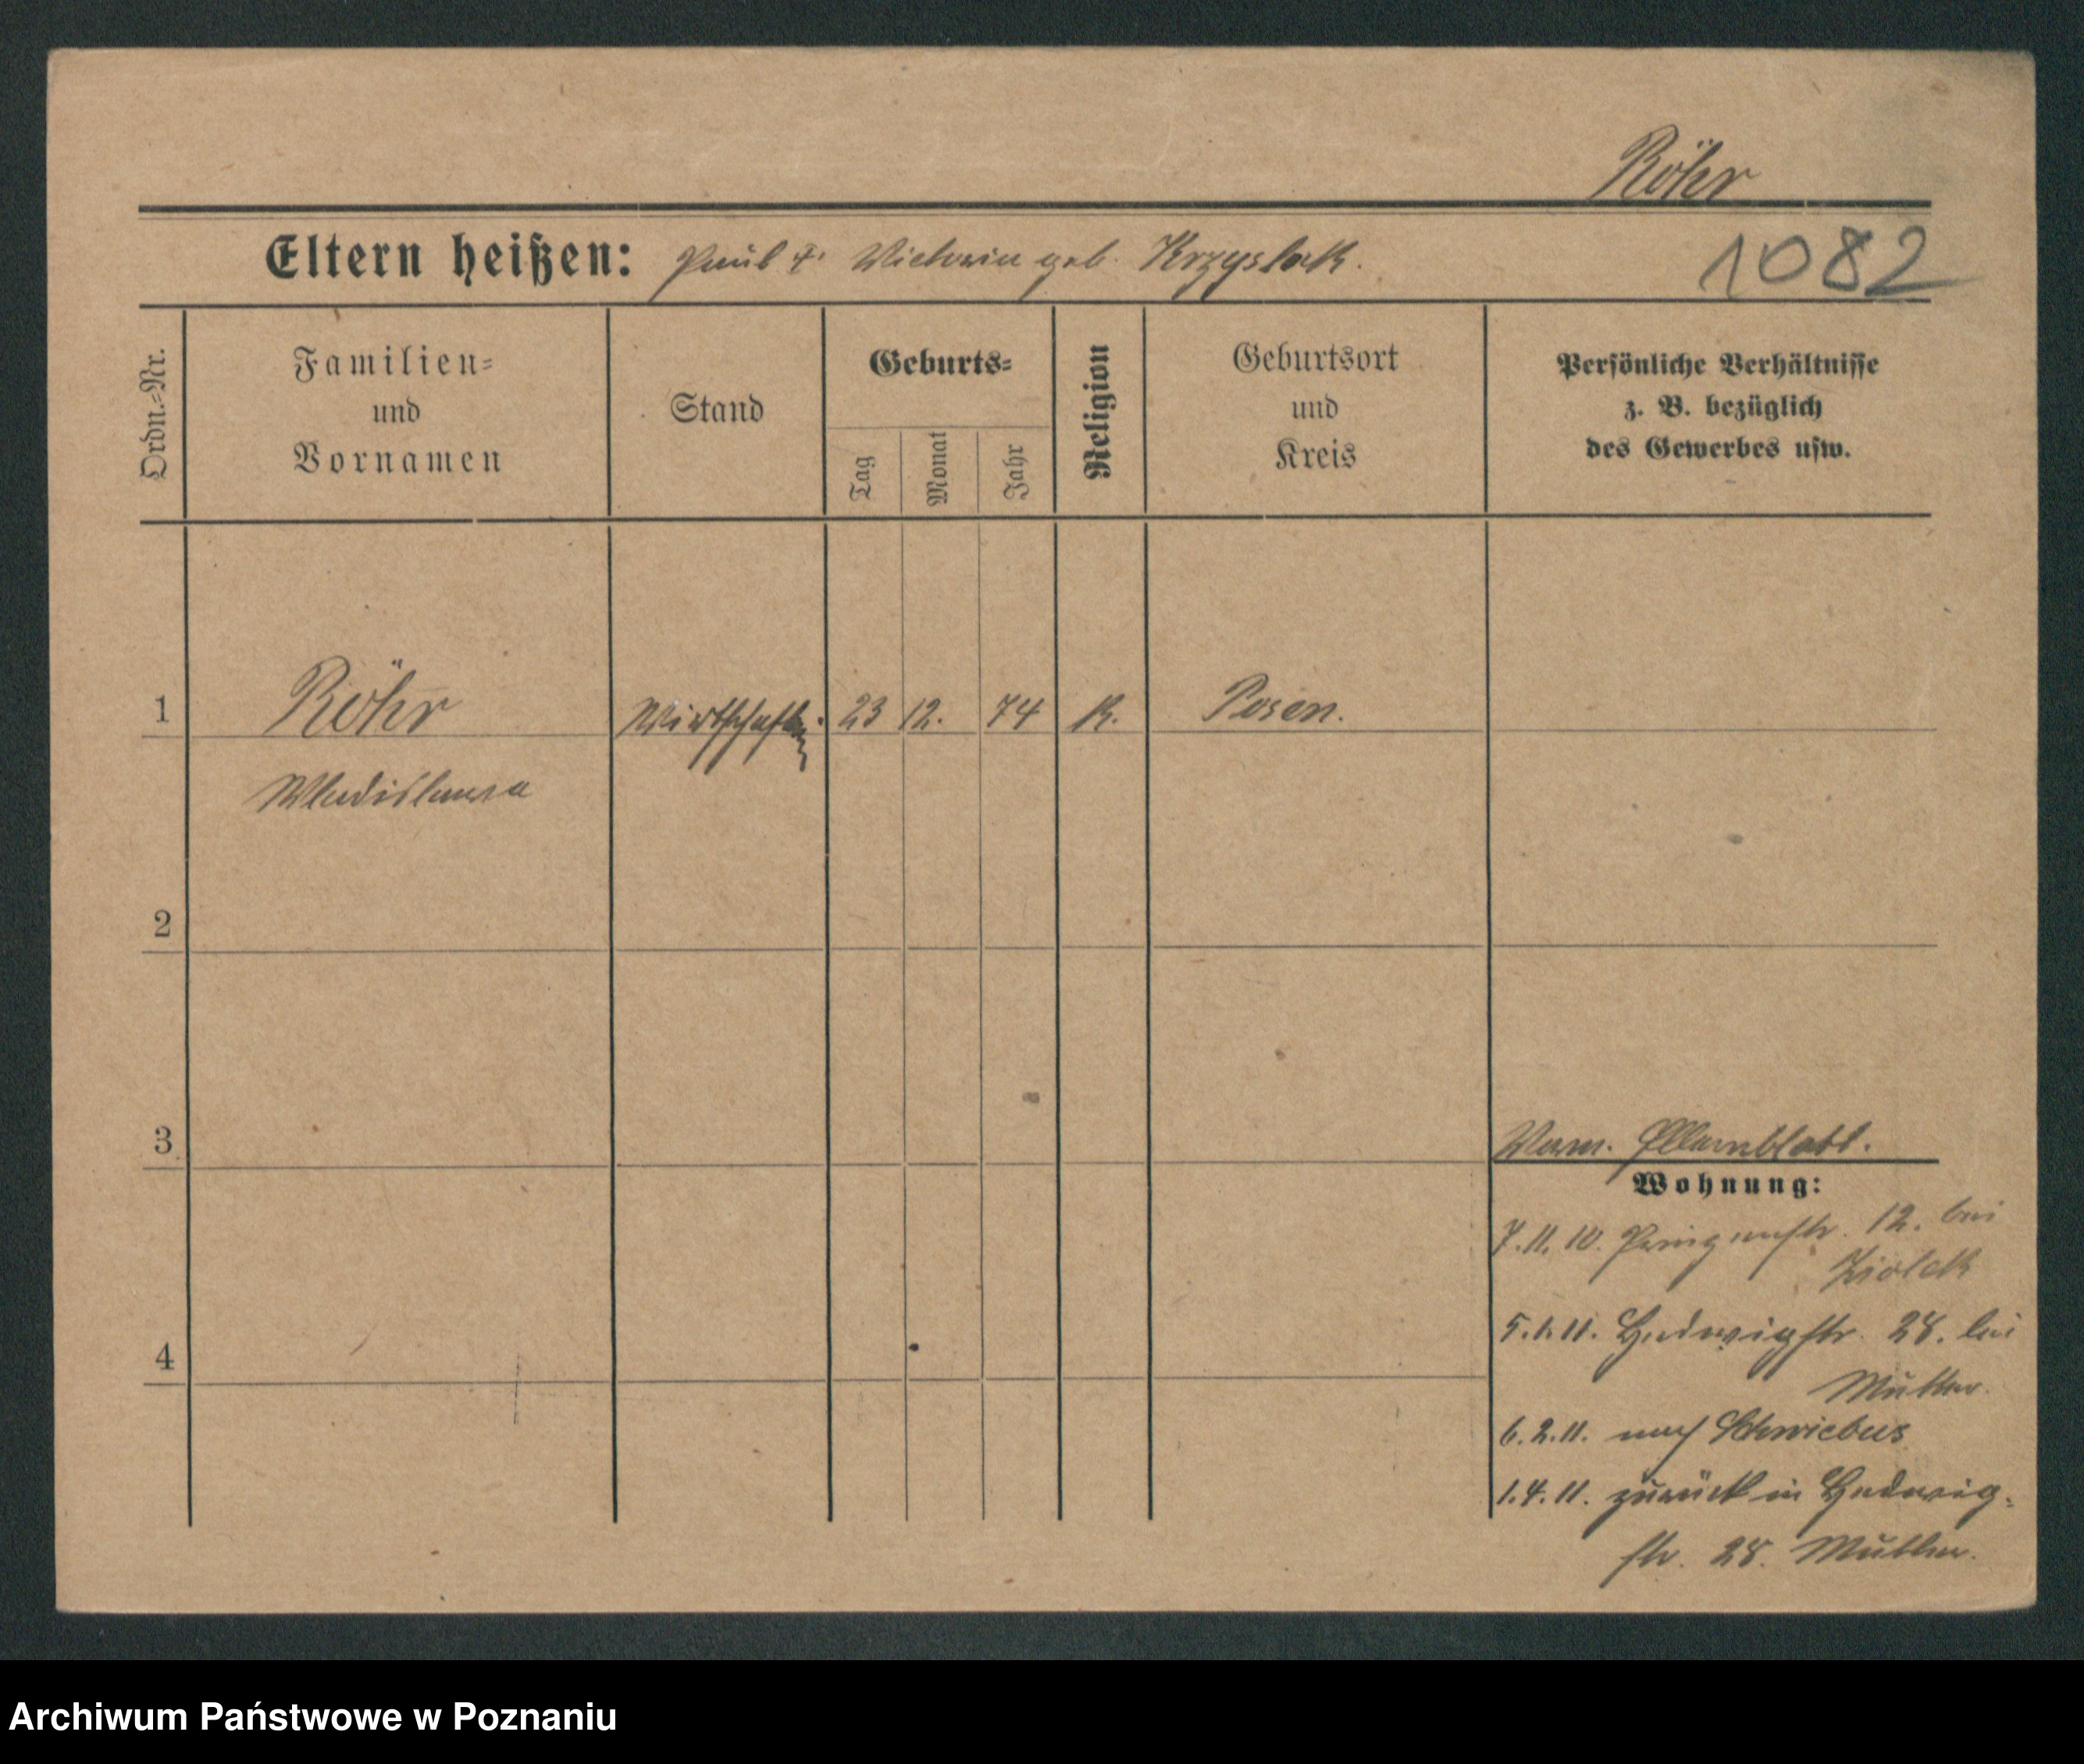 Röhr
Eltern heißen: Paul u. Victoria geb. Krzystak.
1082
Ordn.-Nr.
Familien-
und
Vornamen
Stand
Geburts-
Tag
Monat
Jahr
Religion
Geburtsort
und
Kreis
Persönliche Verhältnisse
z. B. bezüglich
des Gewerbes usw.
1 Röhr Wirtschafterin 23 12. 74 K. Posen.
Wladislawa
2
3
Verm. Elternblatt.
Wohnung:
7.11.10. 12. bei
Ziolek
4
5.1.11. Hedwigstr. 28. bei
Mutter.
6.2.11. nach Schwiebus
1.4.11. zurück in Hedwig-
str. 28. Mutter.
Archiwum Państwowe w Poznaniu